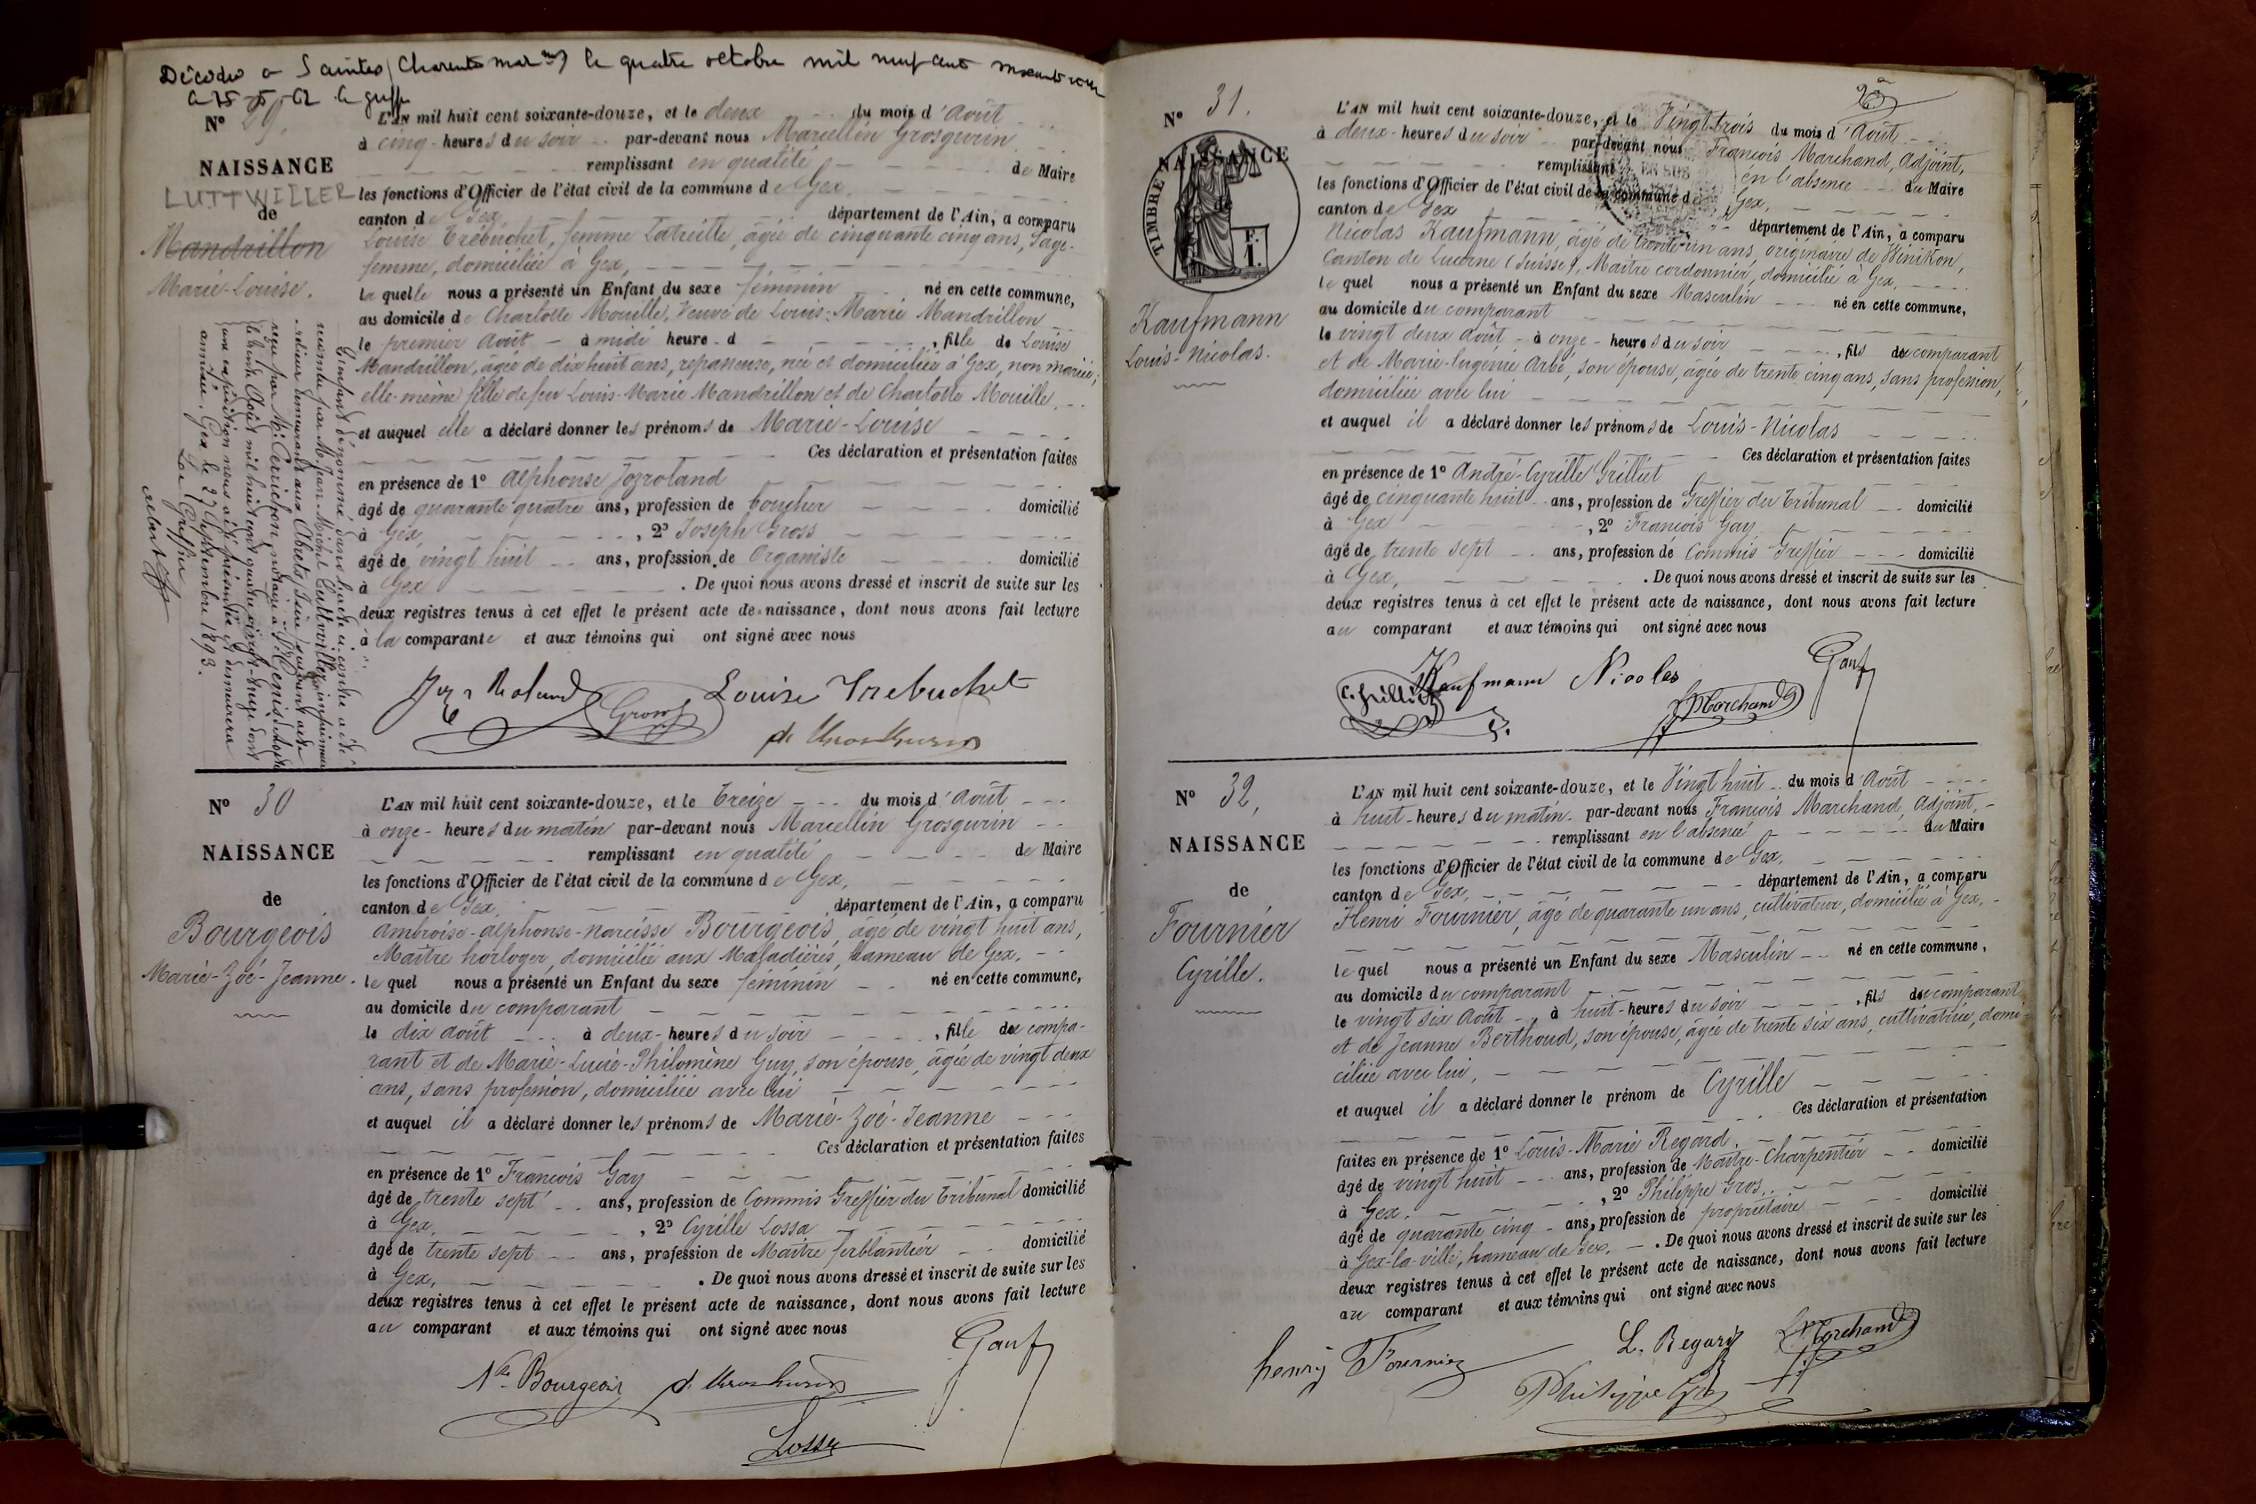 Décédée à Saintes (Charente marme) le quatre octobre mil neuf cent
le greffier
N° 29.
NAISSANCE
LUTTWILLER
de
Mandrillon
Marie-Louise.
L'AN mil huit cent soixante-douze, et le deux du mois d'Août
à cinq heures du soir par-devant nous Marcellin Grosgurin
remplissant en qualité de Maire
les fonctions d'Officier de l'état civil de la commune de Gex
canton de Gex département de l'Ain, a comparu
Louise Trébuchet, femme Latreille, âgée de cinquante cinq ans, Sage-
femme, domiciliée à Gex,
laquelle nous a présenté un Enfant du sexe féminin né en cette commune,
au domicile de Charlotte Mouille, Veuve de Louis-Marie Mandrillon
le premier Août à midi heure d , fille de Louise
Mandrillon, âgée de dix huit ans, repasseuse, née et domiciliée à Gex, non mariée,
elle-même fille de feu Louis-Marie Mandrillon et de Charlotte Mouille,
et auquel elle a déclaré donner les prénoms de Marie-Louise
Ces déclaration et présentation faites
en présence de 1° Alphonse Jozroland
âgé de quarante quatre ans, profession de boucher domicilié
à Gex , 2° Joseph Gross
âgé de vingt huit ans, profession de Organiste domicilié
à Gex . De quoi nous avons dressé et inscrit de suite sur les
deux registres tenus à cet effet le présent acte de naissance, dont nous avons fait lecture
à la comparante et aux témoins qui ont signé avec nous
L'enfant dénommé dans l'acte ci-contre a été
reconnu par M. Jean-Michel Luttwiller, imprimeur
relieur demeurant aux Abrets, suivant acte
reçu par Me Perrichon, notaire à
le trente Août mil huit cent quatre-vingt-treize dont
une expédition nous a été présentée et demeurera
annexée. Gex le 27 Septembre 1893.
Le Greffier
Joz Roland Gross Louise Trebuchet
N° 30
NAISSANCE
de
Bourgeois
Marie-Zoé-Jeanne.
L'AN mil huit cent soixante-douze, et le treize du mois d'Août
à onze heures du matin par-devant nous Marcellin Grosgurin
remplissant en qualité de Maire
les fonctions d'Officier de l'état civil de la commune de Gex,
canton de Gex, département de l'Ain, a comparu
Ambroise-Alphonse-Narcisse Bourgeois, âgé de vingt huit ans,
Maître horloger, domicilié aux Maladières, hameau de Gex,
lequel nous a présenté un Enfant du sexe féminin né en cette commune,
au domicile du comparant
le dix août à deux heures du soir , fille du compa-
rant et de Marie-Lucie-Philomène Guy, son épouse, âgée de vingt deux
ans, sans profession, domiciliée avec lui
et auquel il a déclaré donner les prénoms de Marie-Zoé-Jeanne
Ces déclaration et présentation faites
en présence de 1° François Gay
âgé de trente sept ans, profession de Commis Greffier du Tribunal domicilié
à Gex, , 2° Cyrille Lossa
âgé de trente sept ans, profession de Maître ferblantier domicilié
à Gex, . De quoi nous avons dressé et inscrit de suite sur les
deux registres tenus à cet effet le présent acte de naissance, dont nous avons fait lecture
au comparant et aux témoins qui ont signé avec nous
Gay
Bourgeois
Lossa
N° 31.
NAISSANCE
TIMBRE
F.
1.
EN SUS
Kaufmann
Louis-Nicolas.
L'AN mil huit cent soixante-douze, et le Vingt-trois du mois d'Août
à deux heures du soir par-devant nous François Marchand, Adjoint,
remplissant en l'absence du Maire
les fonctions d'Officier de l'état civil de la commune de Gex,
canton de Gex département de l'Ain, a comparu
Nicolas Kaufmann, âgé de trente-un ans, originaire de Winikon,
Canton de Lucerne (Suisse), Maître cordonnier, domicilié à Gex,
lequel nous a présenté un Enfant du sexe Masculin né en cette commune,
au domicile du comparant
le vingt deux août à onze heures du soir , fils du comparant
et de Marie-Eugénie Arbé, son épouse, âgée de trente cinq ans, sans profession,
domiciliée avec lui
et auquel il a déclaré donner les prénoms de Louis-Nicolas
Ces déclaration et présentation faites
en présence de 1° André-Cyrille Grilliet
âgé de cinquante huit ans, profession de Greffier du Tribunal domicilié
à Gex , 2° François Gay
âgé de trente sept ans, profession de Commis Greffier domicilié
à Gex, . De quoi nous avons dressé et inscrit de suite sur les
deux registres tenus à cet effet le présent acte de naissance, dont nous avons fait lecture
au comparant et aux témoins qui ont signé avec nous
Gay
C. Grilliet Kaufmann Nicolas Marchand
N° 32,
NAISSANCE
de
Fournier
Cyrille.
L'AN mil huit cent soixante-douze, et le Vingt huit du mois d'Août
à huit heures du matin par-devant nous François Marchand, Adjoint,
remplissant en l'absence du Maire
les fonctions d'Officier de l'état civil de la commune de Gex,
canton de Gex, département de l'Ain, a comparu
Henri Fournier, âgé de quarante un ans, cultivateur, domicilié à Gex,
lequel nous a présenté un Enfant du sexe Masculin né en cette commune,
au domicile du comparant
le vingt six Août à huit heures du soir , fils du comparant
et de Jeanne Berthoud, son épouse, âgée de trente six ans, cultivatrice, domi-
ciliée avec lui,
et auquel il a déclaré donner le prénom de Cyrille
Ces déclaration et présentation
faites en présence de 1° Louis-Marie Regard,
âgé de vingt huit ans, profession de Maître-Charpentier domicilié
à Gex, , 2° Philippe Gros,
âgé de quarante cinq ans, profession de propriétaire domicilié
à Gex-la-ville, hameau de Gex, . De quoi nous avons dressé et inscrit de suite sur les
deux registres tenus à cet effet le présent acte de naissance, dont nous avons fait lecture
au comparant et aux témoins qui ont signé avec nous
henry Fournier L. Regard Marchand
Philippe Gros